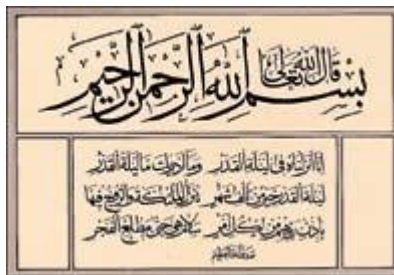 قال الله تعالى
بسم الله الرحمن الرحيم
إنا أنزلناه في ليلة القدر وما أدراك ما ليلة القدر
ليلة القدر خير من ألف شهر تنزل الملائكة والروح فيها
بإذن ربهم من كل أمر سلام هي حتى مطلع الفجر